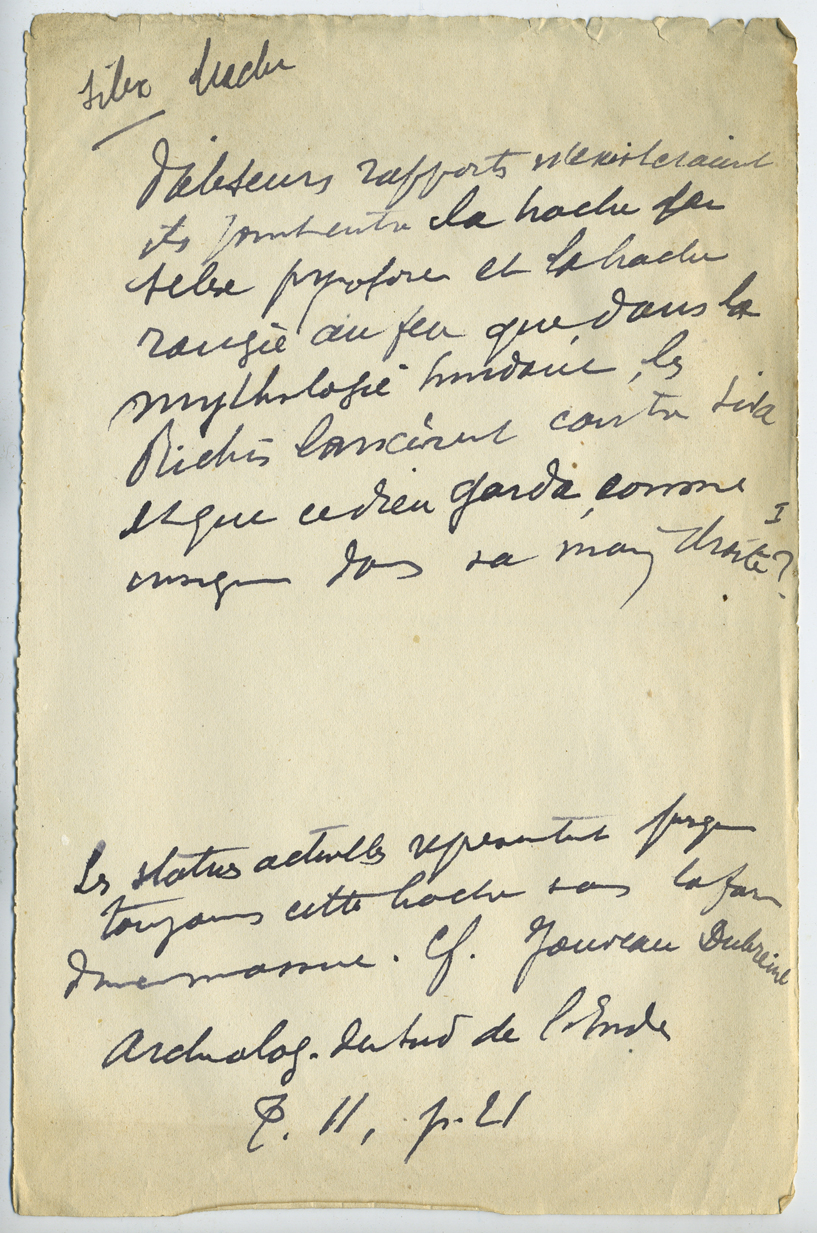 Silex hache
D'ailleurs rapports n'existeraient
ils point entre la hache de
silex pyrofore et la hache
rougie au feu que, dans la
mythologie hindoue, les
Richis lancèrent contre Siva
et que ce dieu garda, comme
insigne dans sa main droite ?
I
Les statues actuelles representent presque
toujours cette hache sous la forme
d'une massue. Cf. Jouveau Dubreuil
Archeolog. du Sud de l'Inde
T. II, p. 21